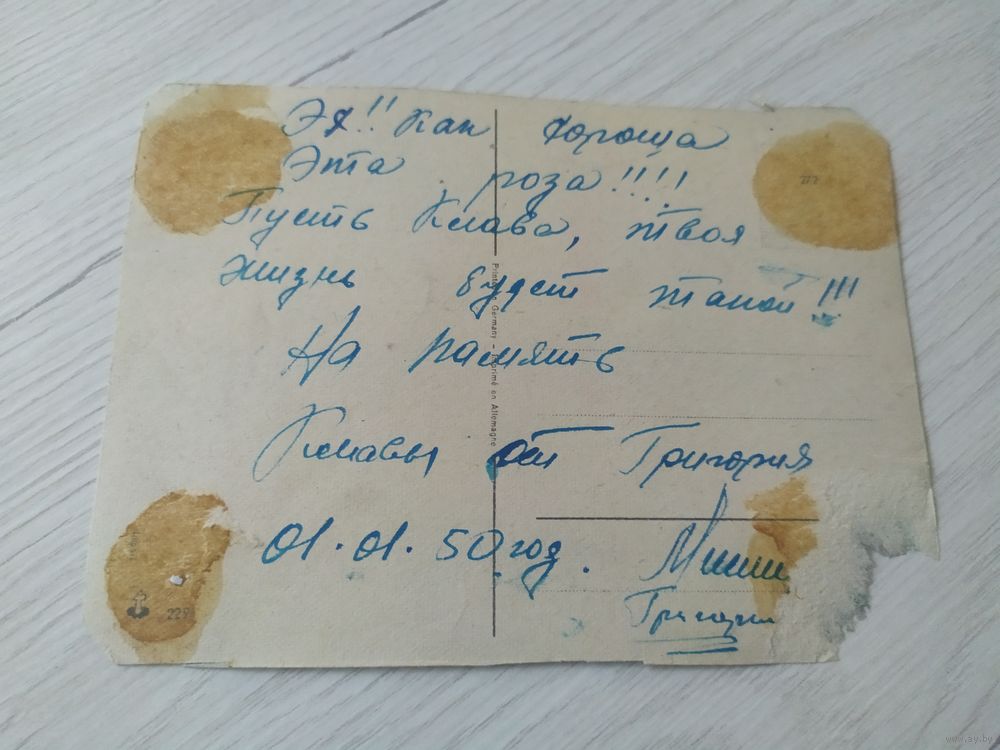 Эх!! Как хороша
Эта роза!!!!
Пусть Клава, твоя
жизнь будет такой!!!
На память
Клавы от Григория
01.01.50 год.
Григори
Printed in Germany – Imprimé en Allemagne
www.ay.by